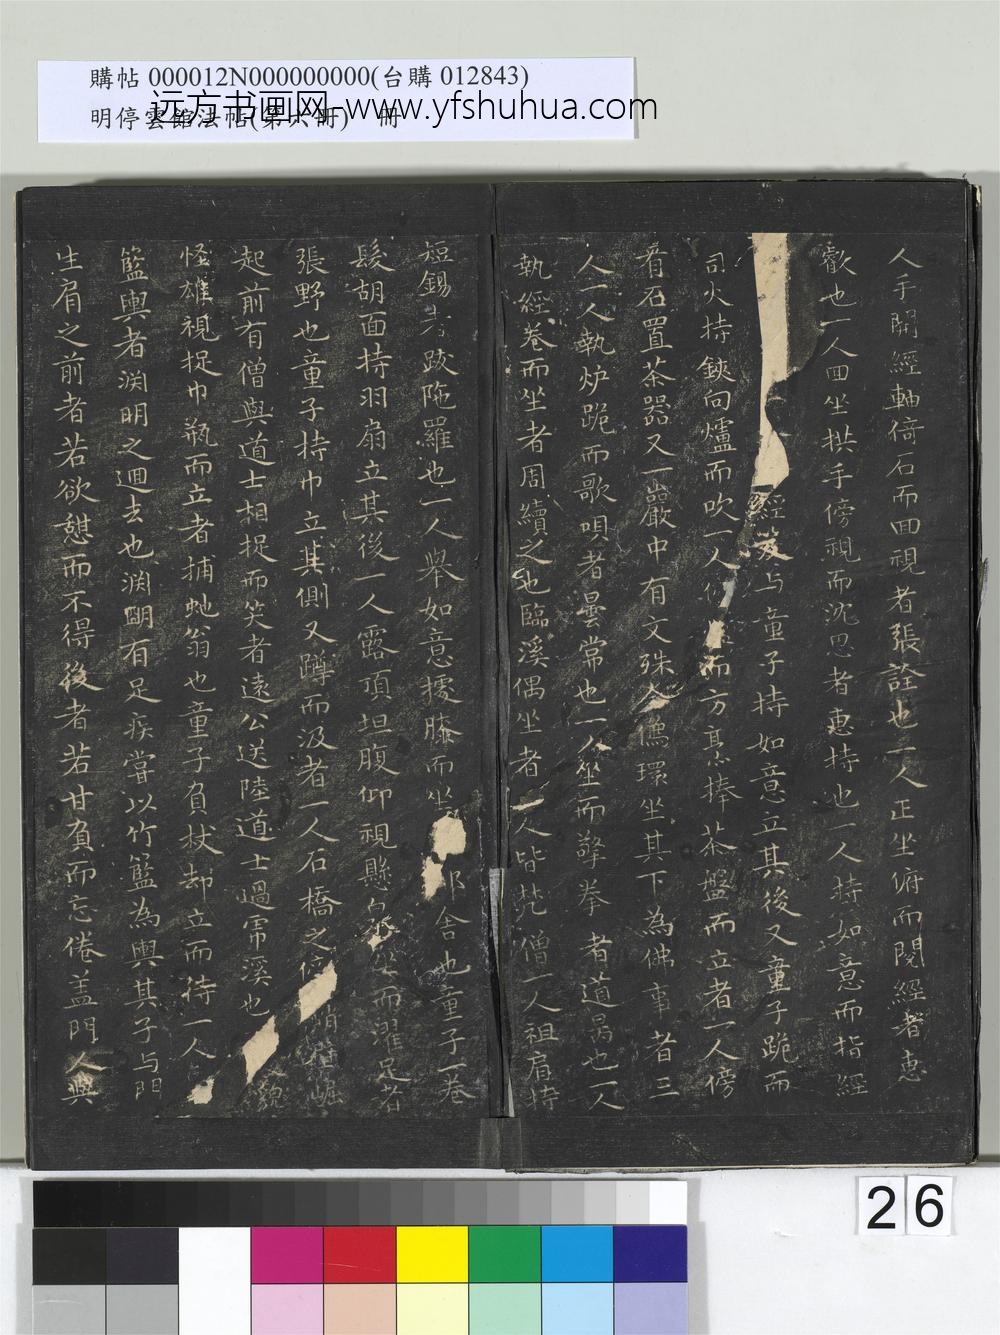 購帖 000012N000000000(台購 012843)
明停雲館法帖(第六冊) 冊
远方书画网-www.yfshuhua.com
人手開經軸倚石而回視者張詮也一人正坐俯而閱經者惠
叡也一人回坐拱手傍視而沈思者惠持也一人持如意而指經
經笈与童子持如意立其後又童子跪而
司火持鋏向爐而吹一人而方烹捧茶盤而立者一人傍
者石置茶器又一巖中有文殊金像環坐其下為佛事者三
人一人執炉跪而歌唄者曇常也一人坐而擎拳者道昺也一人
執經卷而坐者周續之也臨溪偶坐者人皆梵僧一人袒肩持
短錫者跋陁羅也一人舉如意據膝而坐耶舍也童子一卷
髮胡面持羽扇立其後一人露頂坦腹仰視懸坐而濯足者
張野也童子持巾立其側又蹲而汲者一人石橋之峭崛
起前有僧與道士相捉而笑者遠公送陸道士過帍溪也貌
怪雄視捉巾瓶而立者捕虵翁也童子負杖却立而待一人
籃輿者渊明之迴去也渊明有足疾嘗以竹籃為輿其子与門
生肩之前者若欲憇而不得後者若甘負而忘倦盖門人與
26